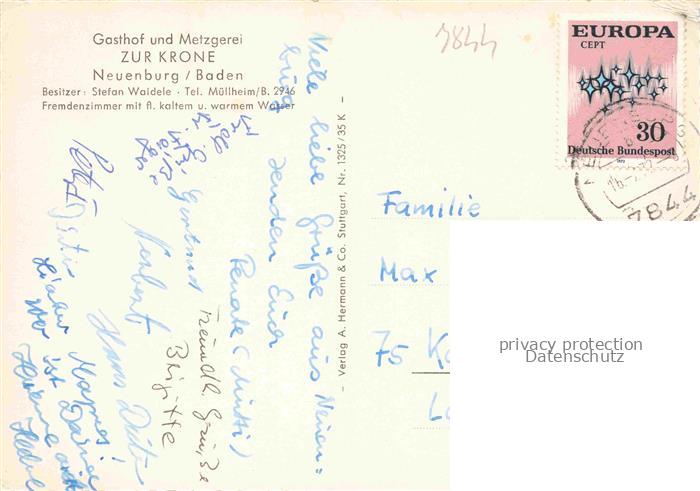 Gasthof und Metzgerei
ZUR KRONE
Neuenburg / Baden
Besitzer: Stefan Waidele · Tel. Müllheim/B. 2946
Fremdenzimmer mit fl. kaltem u. warmem Wasser
7844
EUROPA
CEPT
30
Deutsche Bundespost
1972
7844
Viele liebe Grüße aus Neuen=
burg senden Euch
Renate (Mutti)
Gertrud
Freundl. Grüße
Brigitte
Herbert
Hans Dieter
– Verlag A. Hermann & Co. Stuttgart, Nr. 1325/35 K –
Familie
Max
75 Ka
privacy protection
Datenschutz